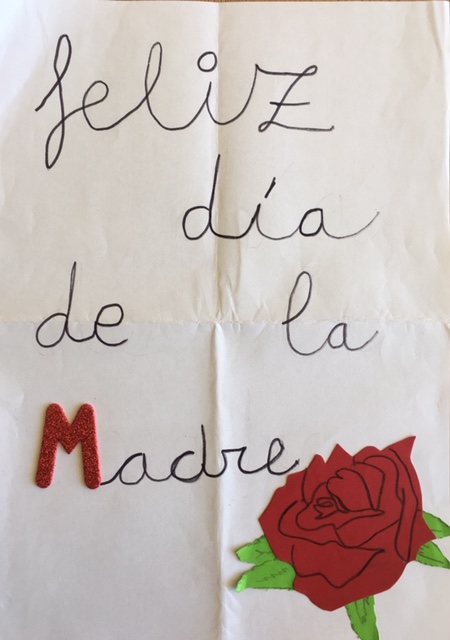 feliz
día
de la
Madre